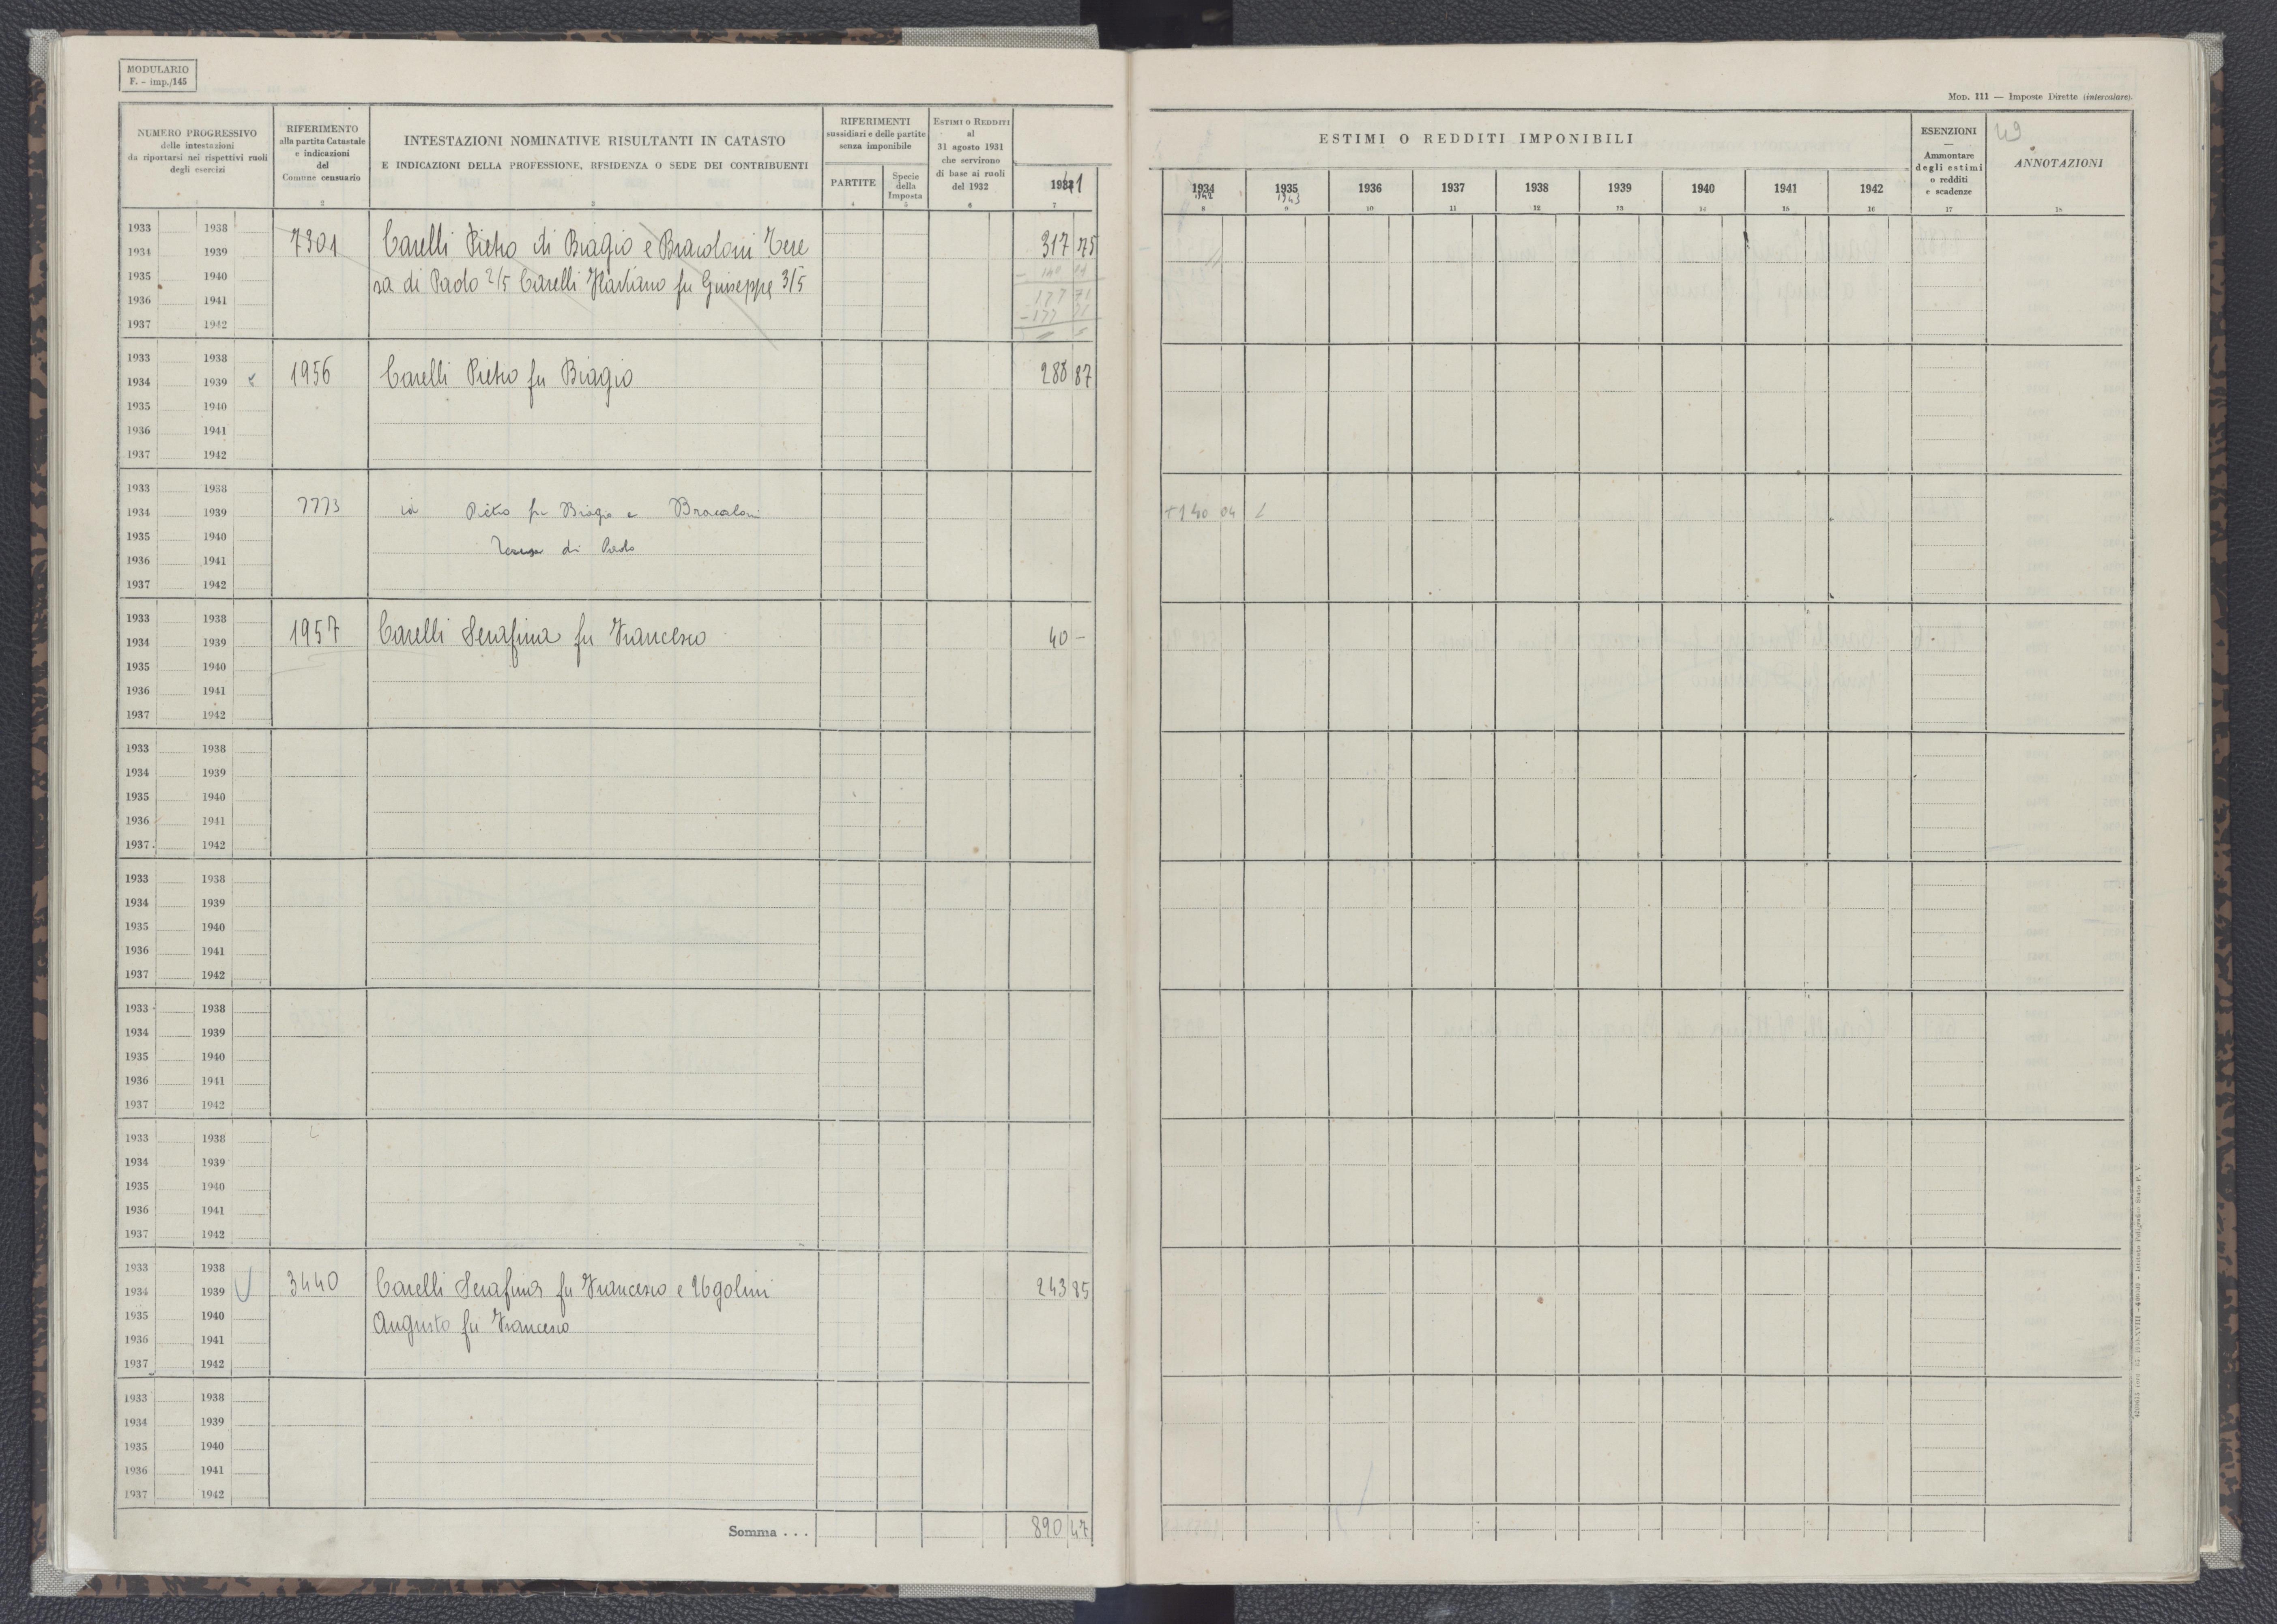 MODULARIO
F. - imp./145
NUMERO PROGRESSIVO
delle intestazioni
da riportarsi nei rispettivi ruoli
degli esercizi
1
RIFERIMENTO
alla partita Catastale
e indicazioni
del
Comune censuario
2
INTESTAZIONI NOMINATIVE RISULTANTI IN CATASTO
E INDICAZIONI DELLA PROFESSIONE, RESIDENZA O SEDE DEI CONTRIBUENTI
3
RIFERIMENTI
sussidiari e delle partite
senza imponibile
PARTITE
4
Specie
della
Imposta
5
ESTIMI O REDDITI
al
31 agosto 1931
che servirono
di base ai ruoli
del 1932
6
41
7
1933 1938
1934 1939
1935 1940
1936 1941
1937 1942
7301
Carelli Pietro di Biagio e Bracaloni Tere
sa di Paolo 2/5 Carelli Flaviano fu Giuseppe 3/5
317 75
- 140 04
177 71
- 177 71
1933 1938
1934 1939
1935 1940
1936 1941
1937 1942
1956
Carelli Pietro fu Biagio
288 87
1933 1938
1934 1939
1935 1940
1936 1941
1937 1942
7773
id Pietro fu Biagio e Bracaloni
Teresa di Paolo
1933 1938
1934 1939
1935 1940
1936 1941
1937 1942
1957
Carelli Serafina fu Francesco
40 -
1933 1938
1934 1939
1935 1940
1936 1941
1937 1942
1933 1938
1934 1939
1935 1940
1936 1941
1937 1942
1933 1938
1934 1939
1935 1940
1936 1941
1937 1942
1933 1938
1934 1939
1935 1940
1936 1941
1937 1942
1933 1938
1934 1939
1935 1940
1936 1941
1937 1942
3440
Carelli Serafina fu Francesco e Ugolini
Augusto fu Francesco
243 85
1933 1938
1934 1939
1935 1940
1936 1941
1937 1942
Somma . . .
890 47
MOD. 111 — Imposte Dirette (intercalare).
ESTIMI O REDDITI IMPONIBILI
1934 1935 1936 1937 1938 1939 1940 1941 1942
1942 1943
8 9 10 11 12 13 14 15 16
ESENZIONI
—
Ammontare
degli estimi
o redditi
e scadenze
17
49
ANNOTAZIONI
18
+140 04